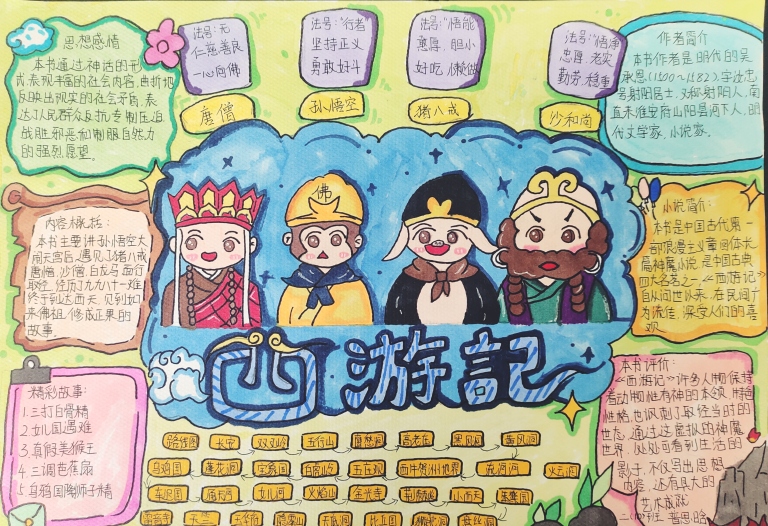 思想感情
本书通过神话的形
式表现丰富的社会内容,曲折地
反映出现实的社会矛盾,表
达了人民群众反抗专制压迫
战胜邪恶和制服自然力
的强烈愿望。
法号:无
仁慈善良
一心向佛
唐僧
法号:"行者"
坚持正义
勇敢好斗
孙悟空
法号:"悟能
憨厚、胆小
好吃 懒做
猪八戒
法号:"悟净
忠厚、老实
勤劳、稳重
沙和尚
作者简介
本书作者是明代的吴
承恩
号射阳居士,
明
代文学家、小说家。
内容概括:
本书主要讲孙悟空大
闹天宫后,遇见了猪八戒
唐僧、沙僧、白龙马西行
取经,经历了九九八十一难
终于到达西天,见到如
来佛祖,修成正果的
故事。
佛
小说简介:
本书是中国古代第一
部浪漫主义章回体长
篇神魔小说,是中国古典
四大名著之一《西游记》
自从问世以来,在民间广
为流传,深受人们的喜
观
西游記
精彩故事:
1.三打白骨精
2.女儿国遇难
3.真假美猴王
4.三调芭蕉扇
5.乌鸡国降狮子精
本书评价:
《西游记》许多人物保持
着动物性有神的本领,
性格,也讽刺了取经当时的
世态,通过这虚拟的神魔
世界,处处可看到生活的
影子,不仅写出思想
内容,还有具大的
艺术成就
路线图 长安 双叉岭 五行山 高老庄 黄风洞
乌鸡国 莲花洞 宝象国 白骨岭 五庄观 西牛贺州地界 流沙河 火云洞
车迟国 通天河 女儿河 火焰山 金光寺 荆棘岭 小西天
比丘国